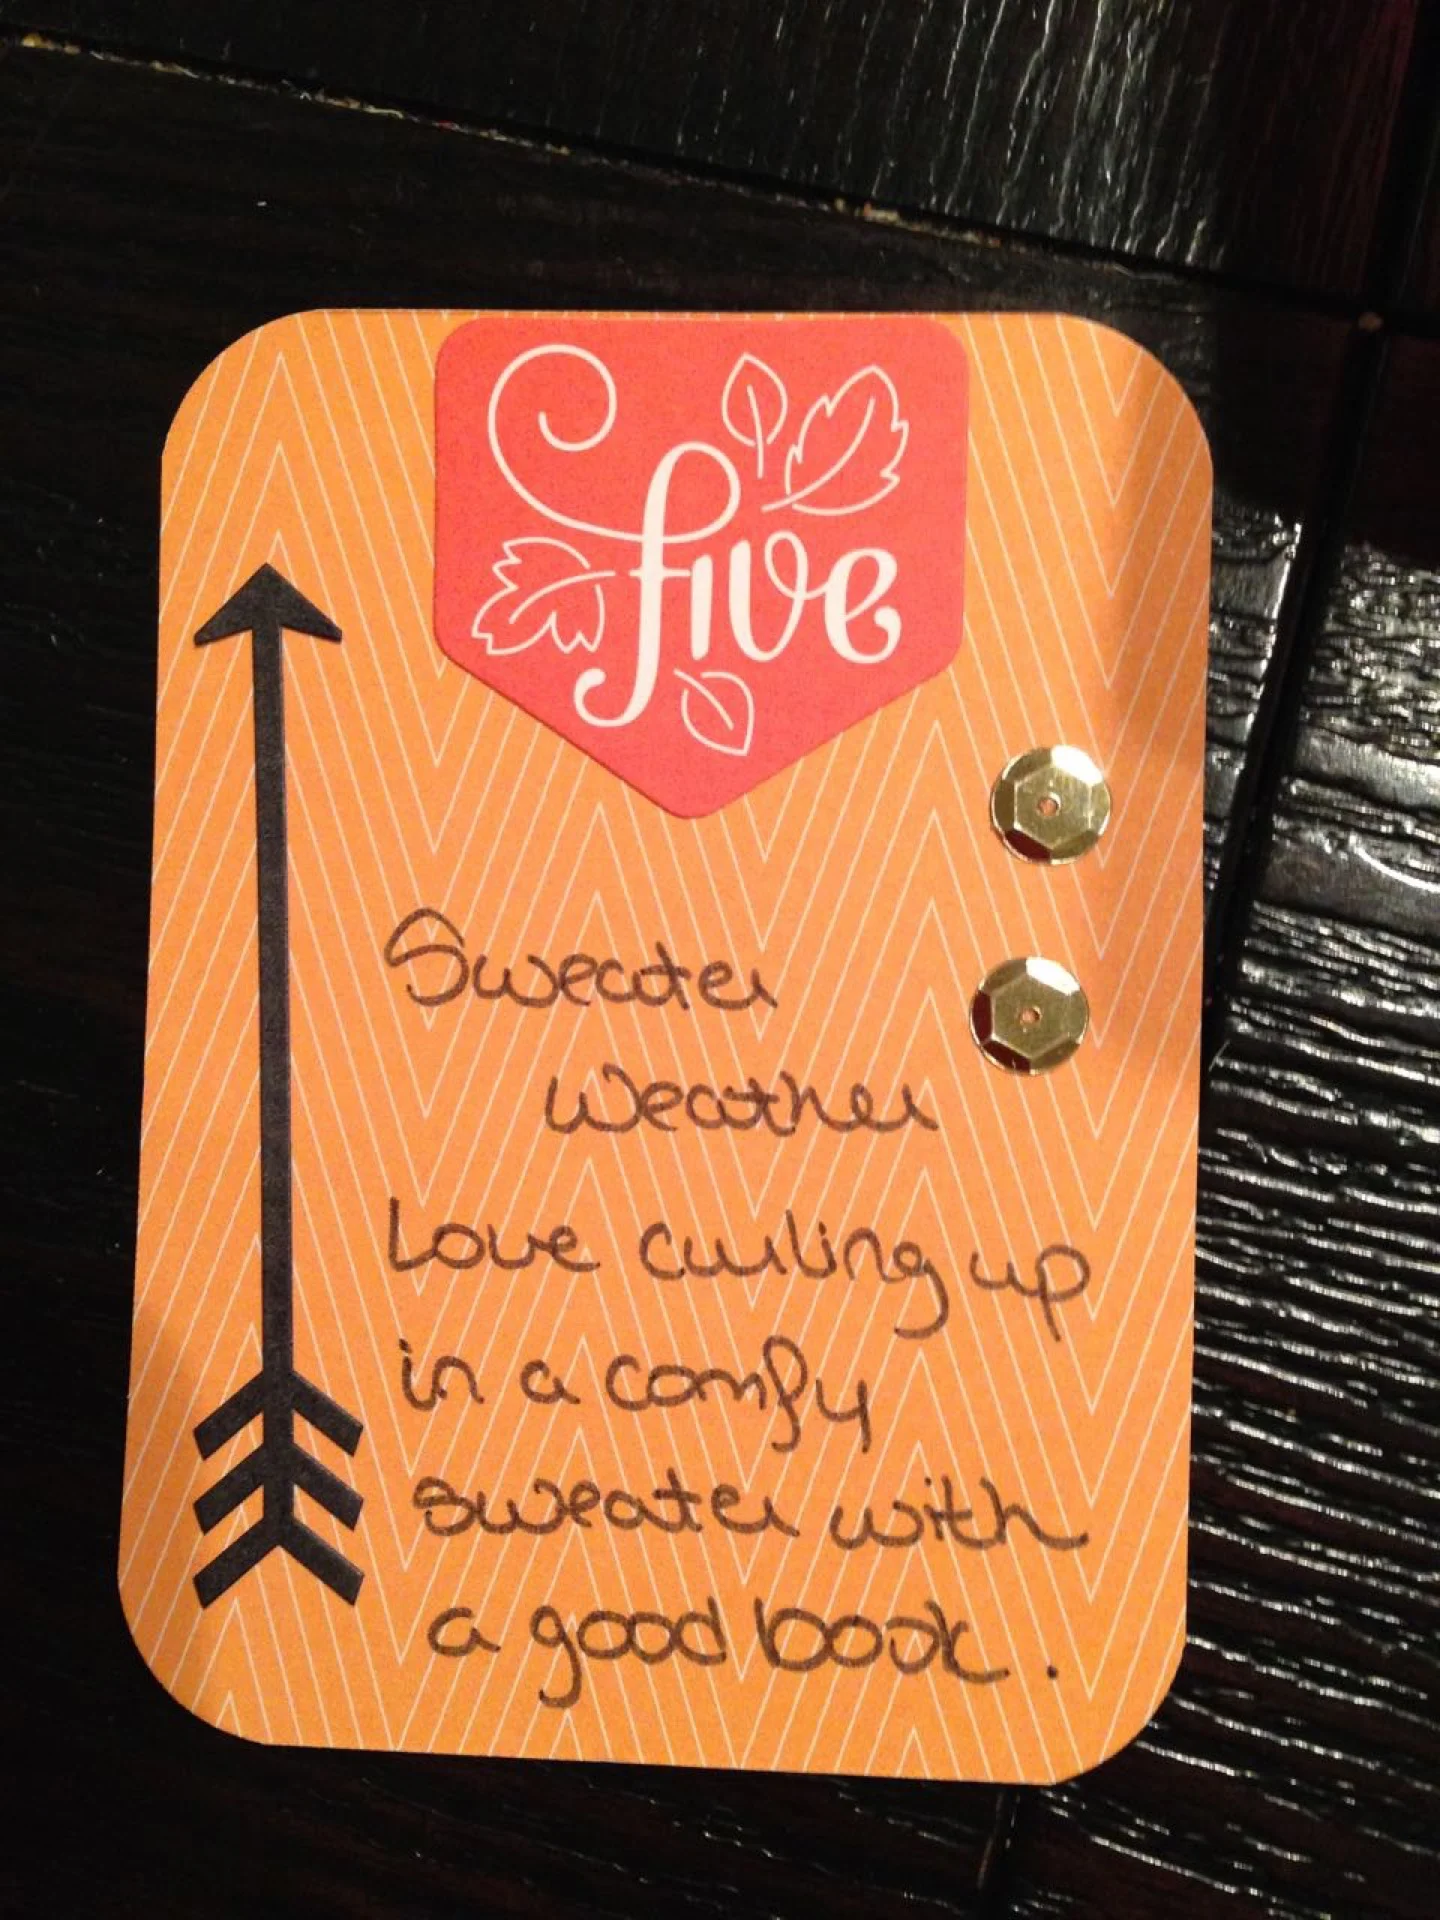 five
Sweater
Weather
Love curling up
in a comfy
sweater with
a good book.